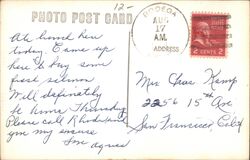 12-
PHOTO POST CARD
BODEGA
AUG
17
AM.
ADDRESS
2 CENTS 2
At home here
today. Came up
here to buy some
fresh salmon
Will definately
be home Thursday
Please call Rhoda and
give my excuse
Agnes
Mrs Chas Kemp
2256 15th Ave
San Francisco, Calif